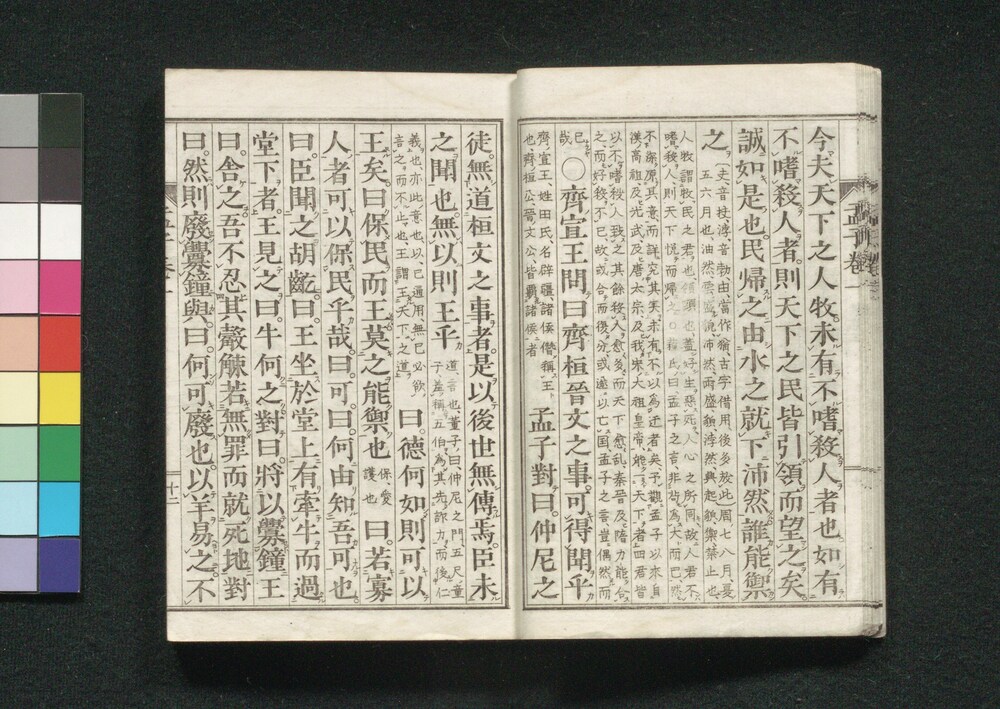 今夫天下之人牧。未有不嗜殺人者也。如有
不嗜殺人者。則天下之民皆引領而望之矣
誠如是也。民歸之由水之就下沛然誰能禦
之
夫音扶浡音勃由當作猶古字借用後多放此周七八月夏
五六月也油然雲盛貌沛然雨盛貌浡然興起貌禦禁止也
人牧謂牧民之君也領頸也蓋好生惡死人心之所同故人君不
嗜殺人則天下悅而歸之○蘇氏曰孟子之言非苟為大而已然
不深原其意而詳究其實未有不以為迂者矣予觀孟子以來自
漢高祖及光武及唐太宗及我宋太祖皇帝能一天下者四君皆
以不嗜殺人致之其餘殺人愈多而天下愈亂秦晉及隋力能合
之而好殺不已故或合而復分或遂以亡國孟子之言豈偶然而
已
哉
○齊宣王問曰齊桓晉文之事。可得聞乎
齊宣王姓田氏名辟疆諸侯僭稱王
也齊桓公晉文公皆霸諸侯者
孟子對曰。仲尼之
徒。無道桓文之事者。是以後世無傳焉。臣未
之聞也。無以則王乎
道言也董子曰仲尼之門五尺童
子羞稱五伯為其先詐力而後仁
義也亦此意也以已通用無已必欲
言之而不止也王謂王天下之道
曰。德何如則可以
王矣。曰保民而王莫之能禦也
保愛
護也
曰。若寡
人者可以保民乎哉。曰。可。曰。何由知吾可也
曰。臣聞之胡齕。曰。王坐於堂上有牽牛而過
堂下者。王見之。曰。牛何之。對曰。將以釁鐘。王
曰。舍之。吾不忍其觳觫若無罪而就死地對
曰。然則廢釁鐘與。曰。何可廢也。以羊易之。不
孟子卷一
十二